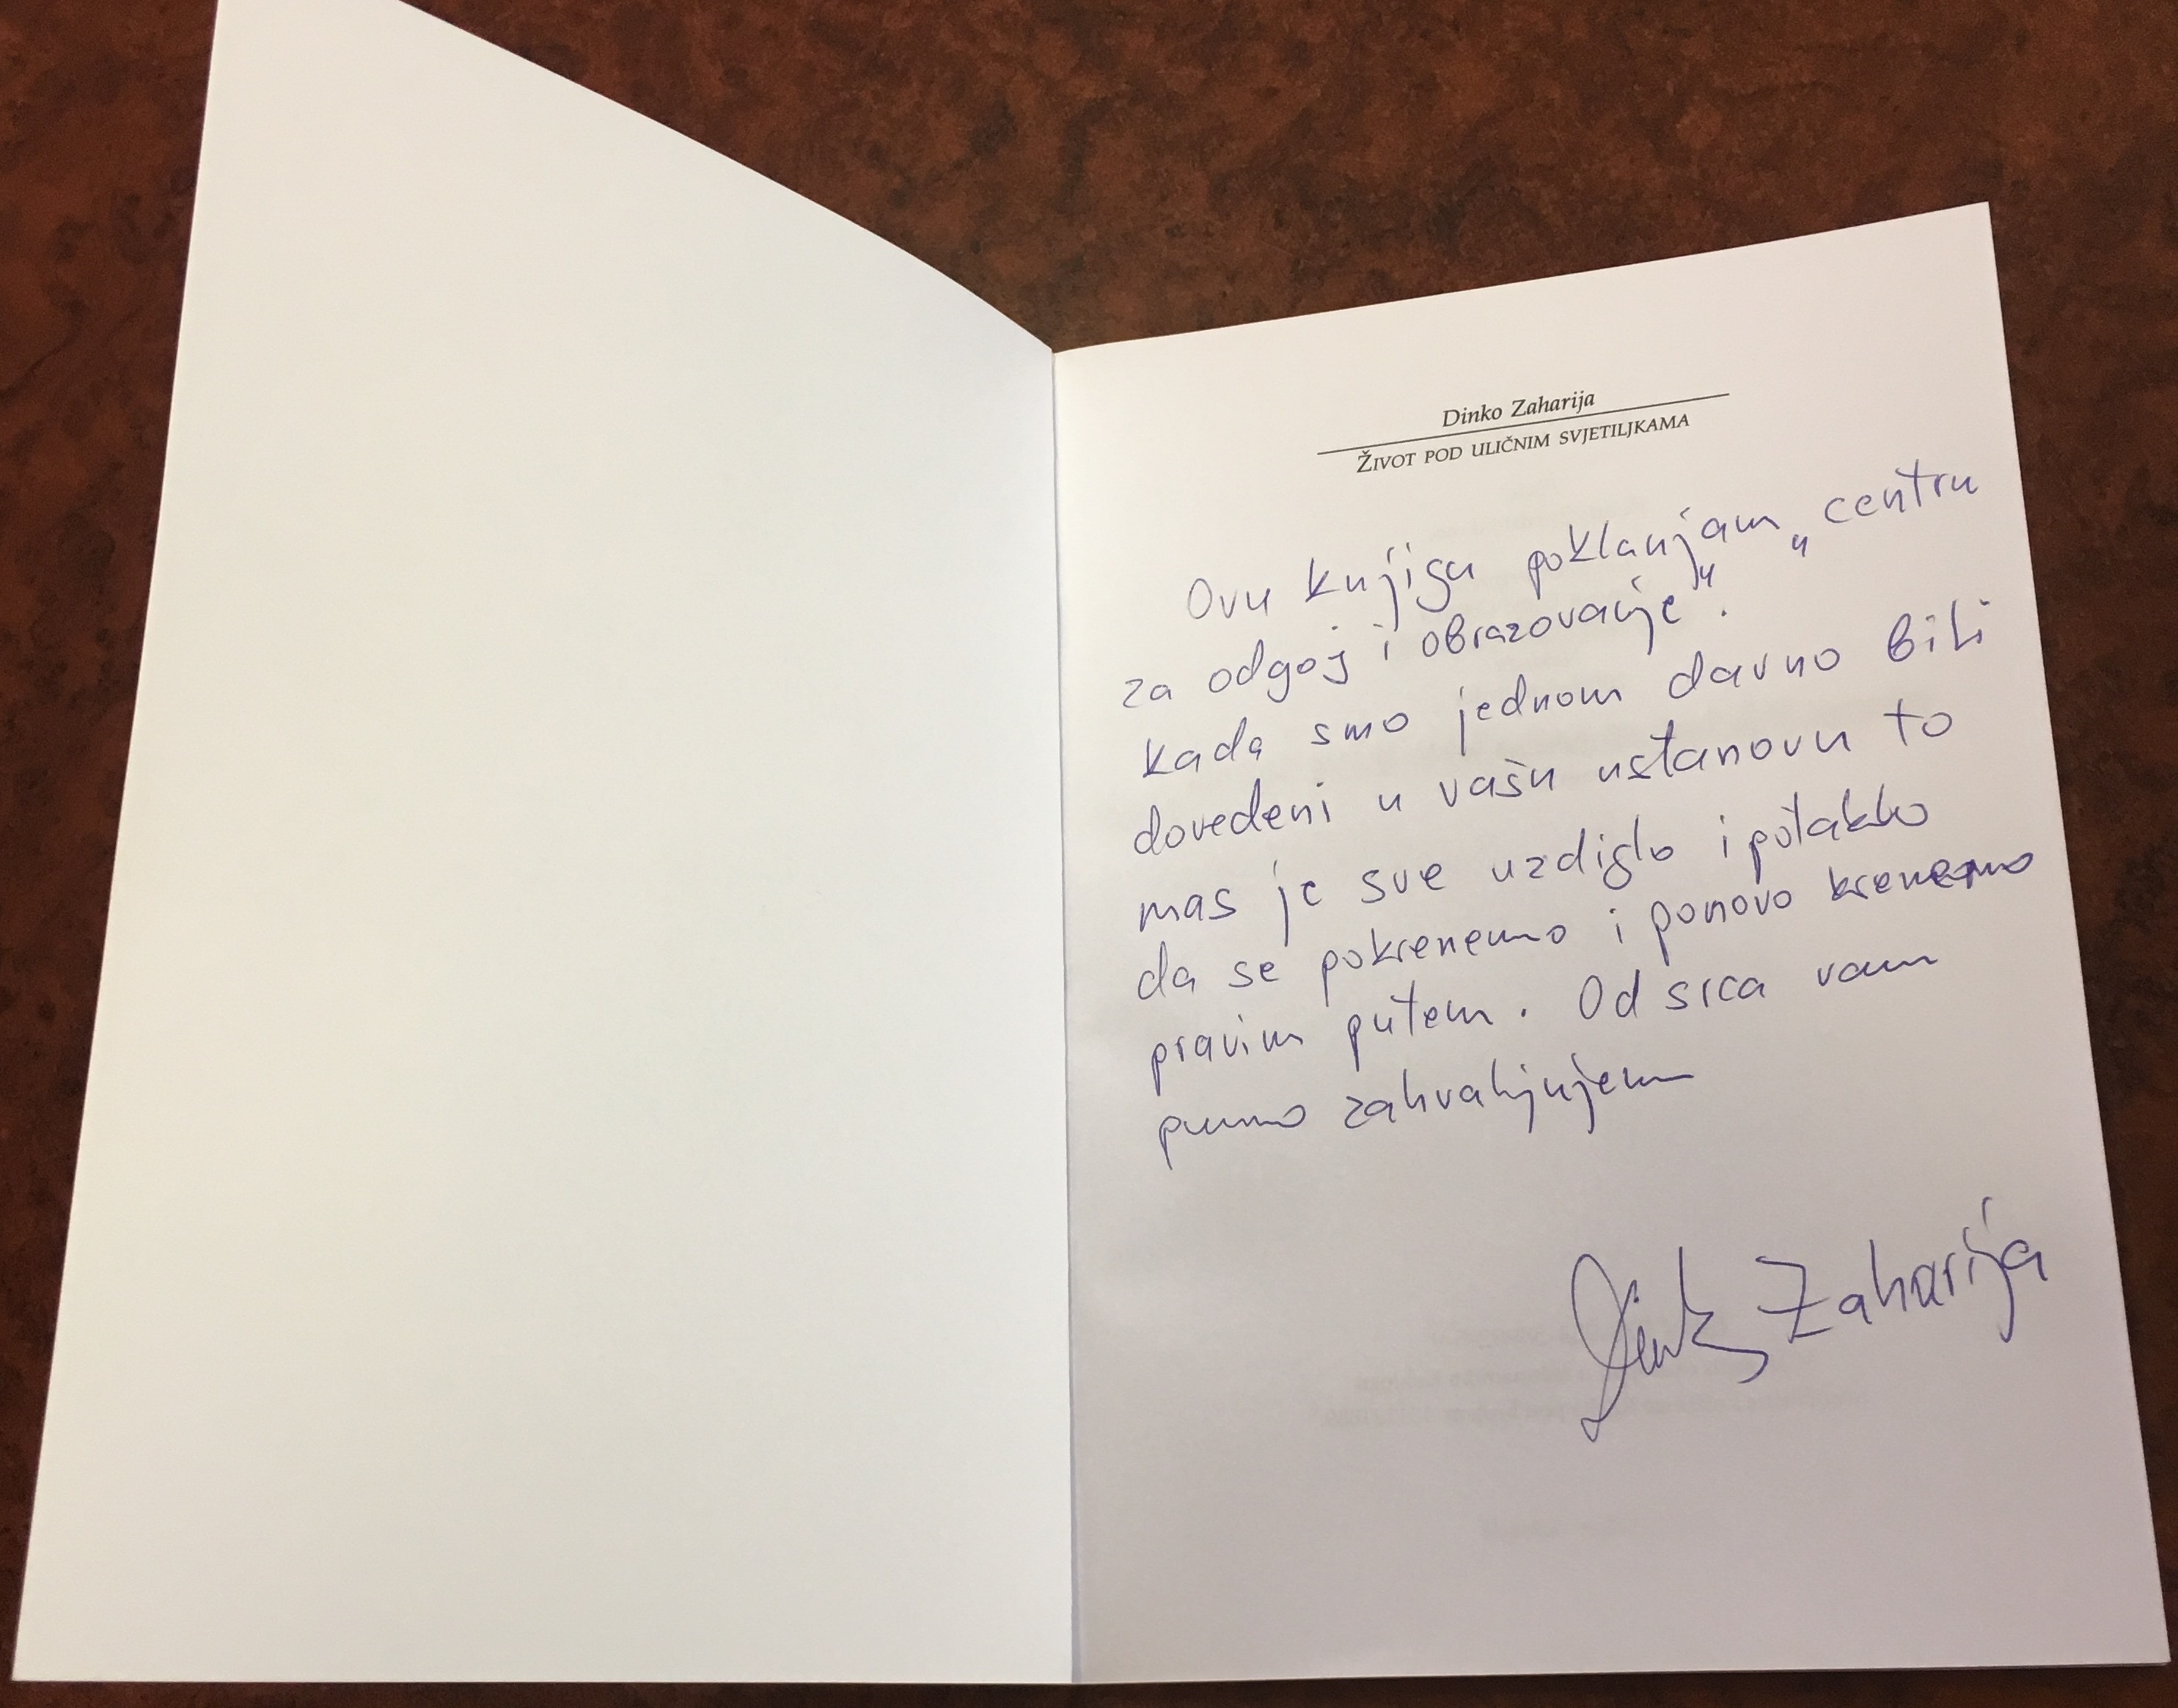 Dinko Zaharija
ŽIVOT POD ULIČNIM SVJETILJKAMA
Ovu knjigu poklanjam „centru
za odgoj i obrazovanje".
kada smo jednom davno bili
dovedeni u vašu ustanovu to
nas je sve uzdiglo i potaklo
da se pokrenemo i ponovo krenemo
pravim putem. Od srca vam
puno zahvaljujem
Dinko Zaharija